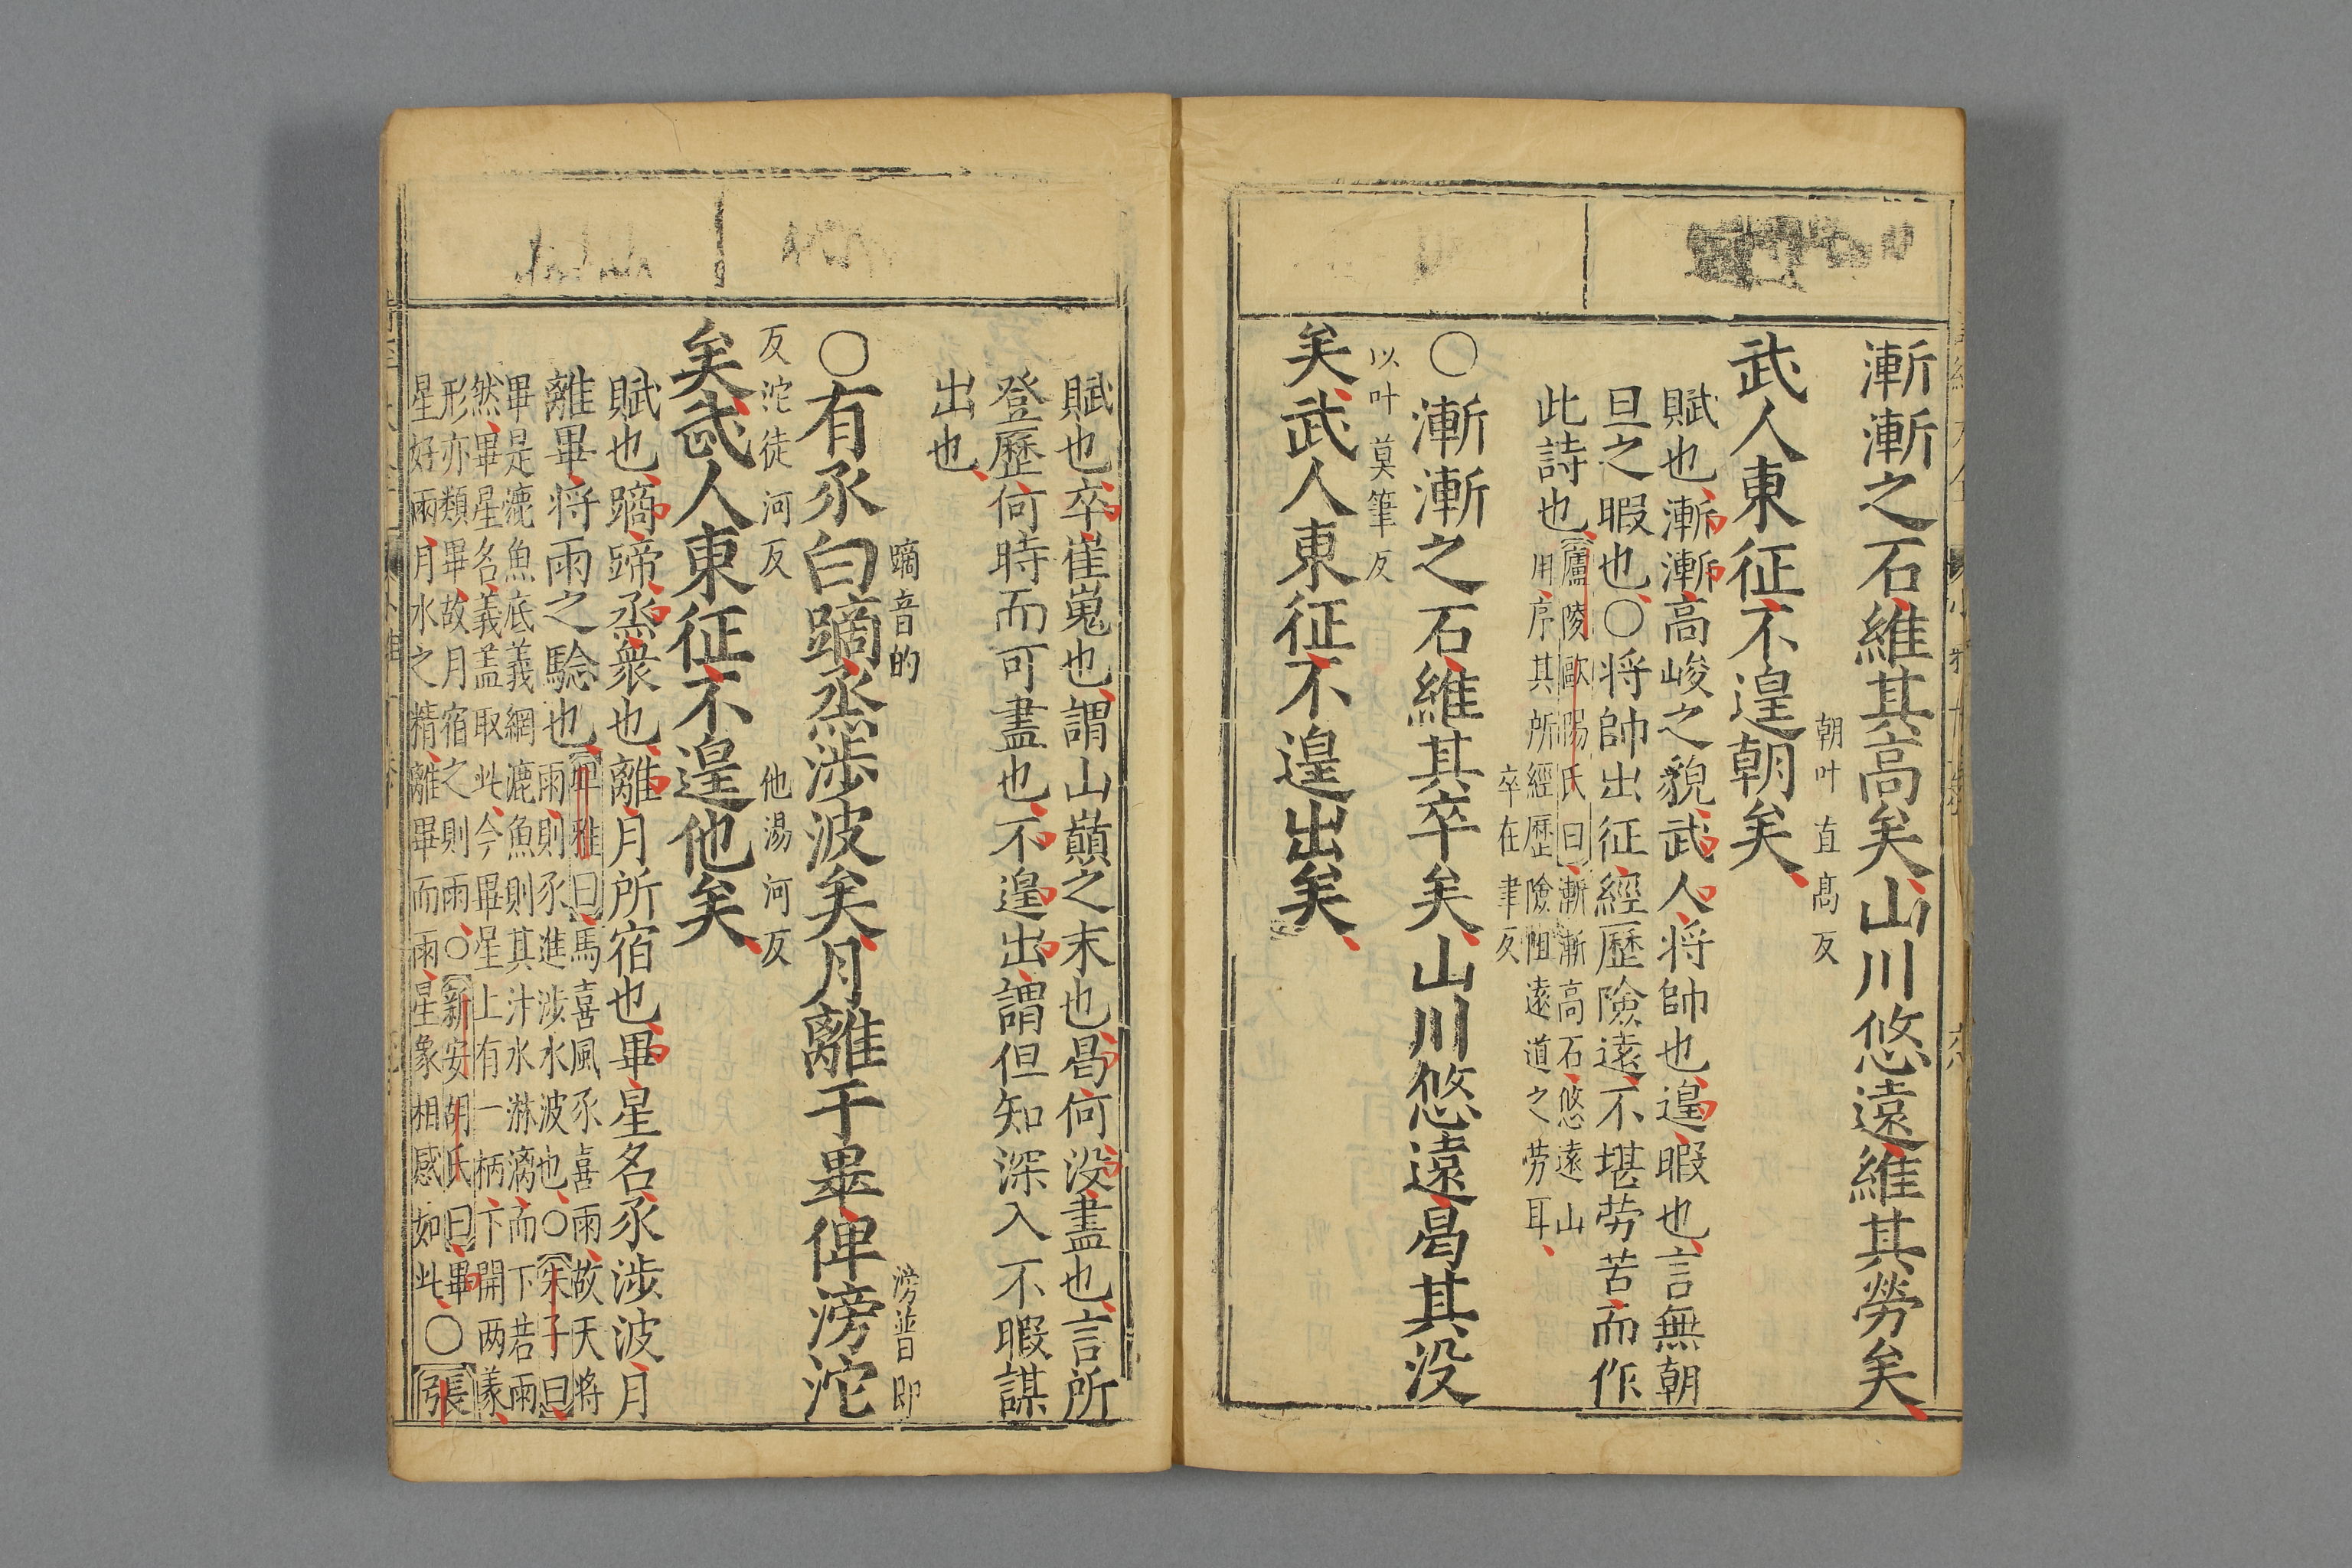 漸漸之石維其高矣山川悠遠維其勞矣
朝叶直高反
武人東征不遑朝矣
賦也漸漸高峻之貌武人將帥也遑暇也言無朝
旦之暇也○将帥出征經歷險遠不堪劳苦而作
此詩也
廬陵歐陽氏曰漸漸高石悠遠山
川序其所經歷險阻遠道之劳耳
卒在聿反
○漸漸之石維其卒矣山川悠遠曷其没
以叶莫筆反
矣武人東征不遑出矣
賦也卒崔嵬也謂山巔之末也曷何没盡也言所
登歷何時而可盡也不遑出謂但知深入不暇謀
出也
蹢音的 滂普郎
○有豕白蹢烝涉波矣月離于畢俾滂沱
反沱徒河反 他湯河反
矣武人東征不遑他矣
賦也蹢蹄烝衆也離月所宿也畢星名豕涉波月
離畢将雨之驗也
埤雅曰馬喜風豕喜雨故天将
雨則豕進涉水波也○朱子曰
畢是漉魚底義網漉魚則其汁水淋漓而下若雨
然畢星名義盖取此今畢星上有一柄下開两㨾
形亦類畢故月宿之則雨○新安胡氏曰畢
星好雨月水之精離畢而雨星象相感如此○張